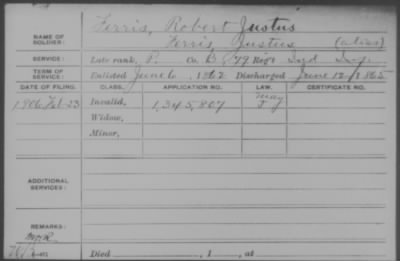 Ferris, Robert Justus
NAME OF SOLDIER: Ferris, Justus (alias)
SERVICE: Late rank, P. Co. B, 79 Reg't Ind Inf.
TERM OF SERVICE: Enlisted June 6, 1862 Discharged June 12, 1865
DATE OF FILING. CLASS. APPLICATION NO. LAW. CERTIFICATE NO.
1906 Feb-23 Invalid, 1,345,807
Widow,
Minor,
ADDITIONAL SERVICES:
REMARKS:
Died , 1 , at